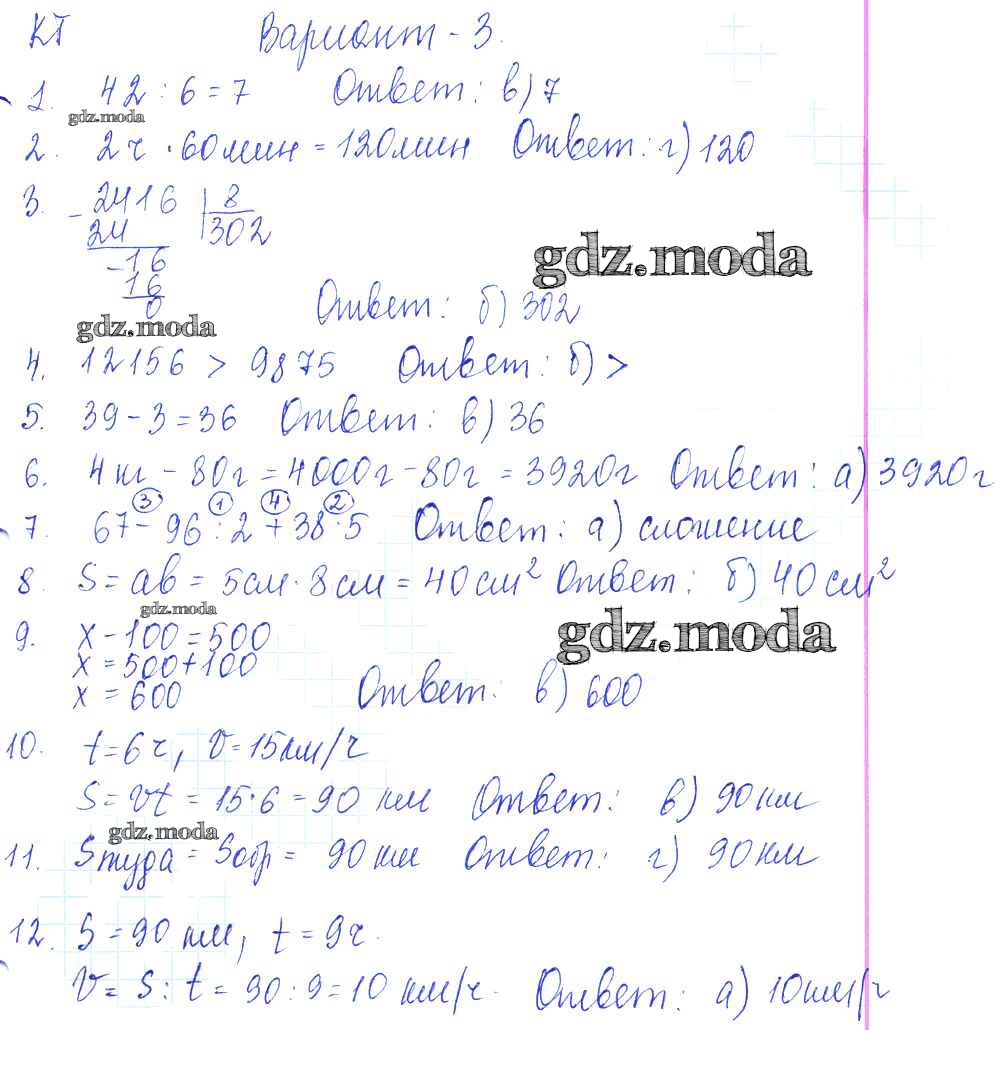 КТ Вариант - 3.
1. 42 : 6 = 7 Ответ: в) 7
gdz.moda
2. 2ч · 60мин = 120мин Ответ: г) 120
3. - 2416 | 8
24 302
gdz.moda
- 16
16
0 Ответ: б) 302
gdz.moda
4. 12156 > 9875 Ответ: б) >
5. 39 - 3 = 36 Ответ: в) 36
6. 4кг - 80г = 4000г - 80г = 3920г Ответ: а) 3920г
3 1 4 2
7. 67 - 96 : 2 + 38 · 5 Ответ: а) сложение
8 S = ab = 5см · 8см = 40см² Ответ: б) 40см²
gdz.moda
gdz.moda
9. x - 100 = 500
x = 500 + 100
x = 600 Ответ: в) 600
10. t = 6ч, v = 15км/ч
S = vt = 15 · 6 = 90 км Ответ: в) 90км
gdz.moda
11. Sтуда = Sобр = 90км Ответ: г) 90км
12. S = 90 км, t = 9ч.
v = S : t = 90 : 9 = 10 км/ч. Ответ: а) 10км/ч